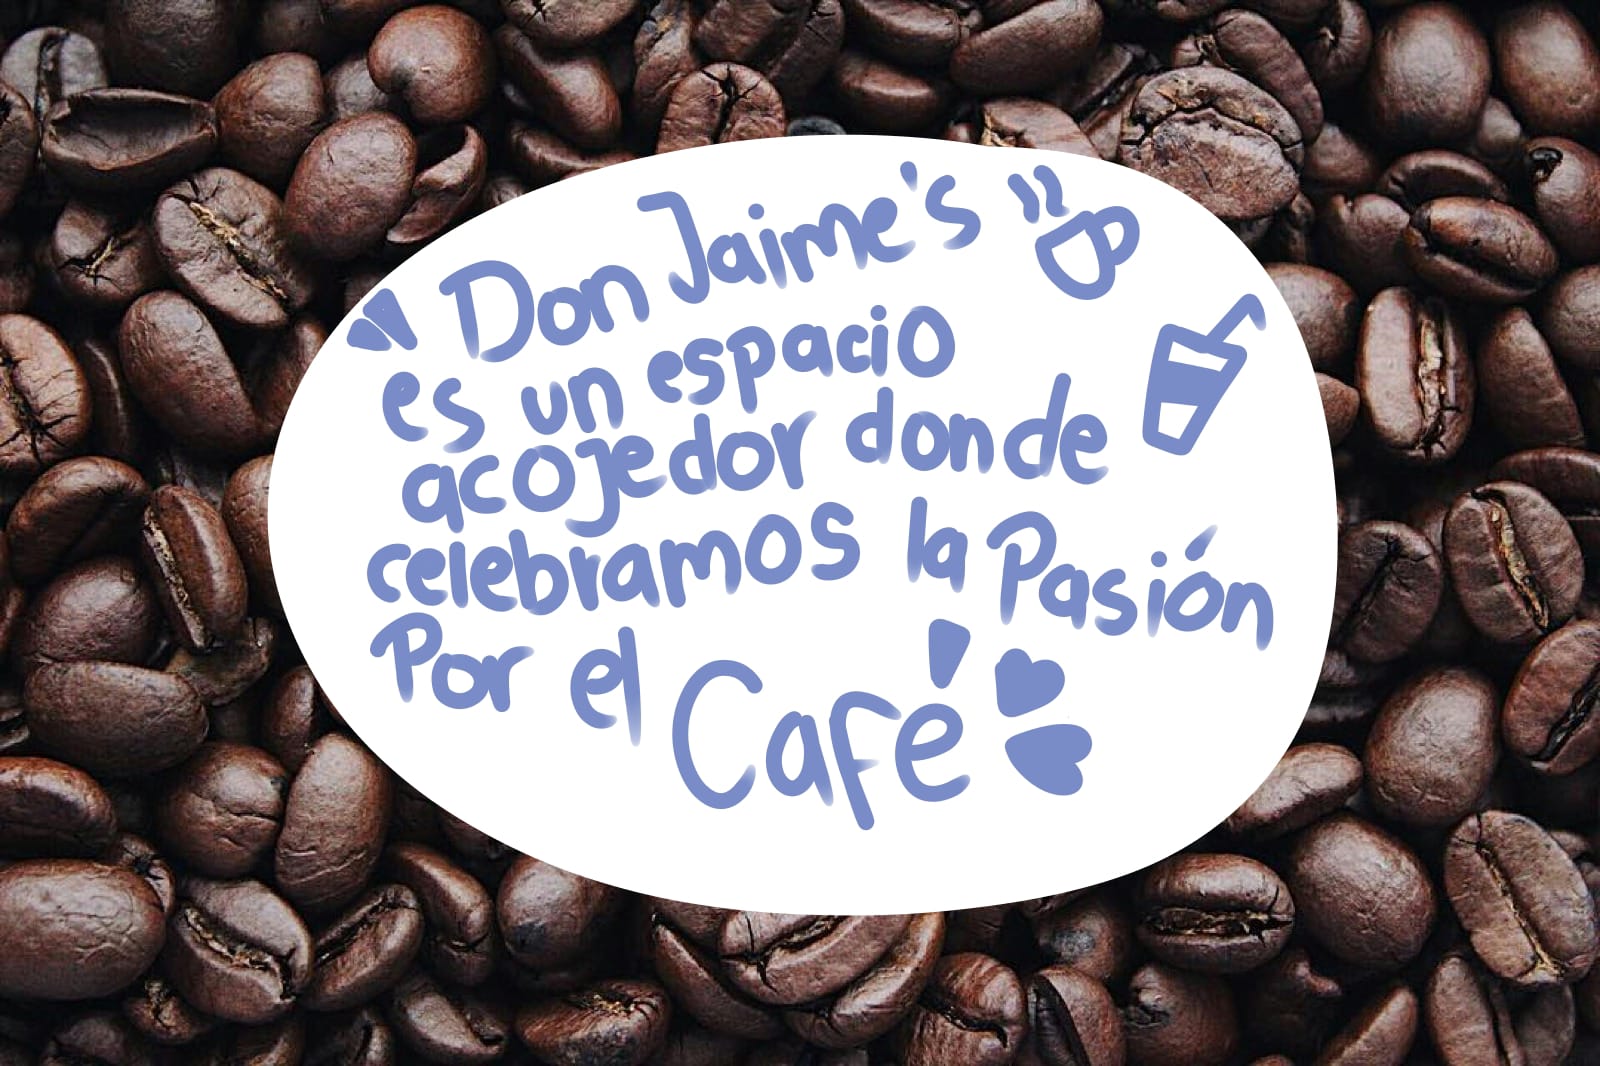 "Don Jaime's
es un espacio
acojedor donde
celebramos la Pasión
Por el Café"